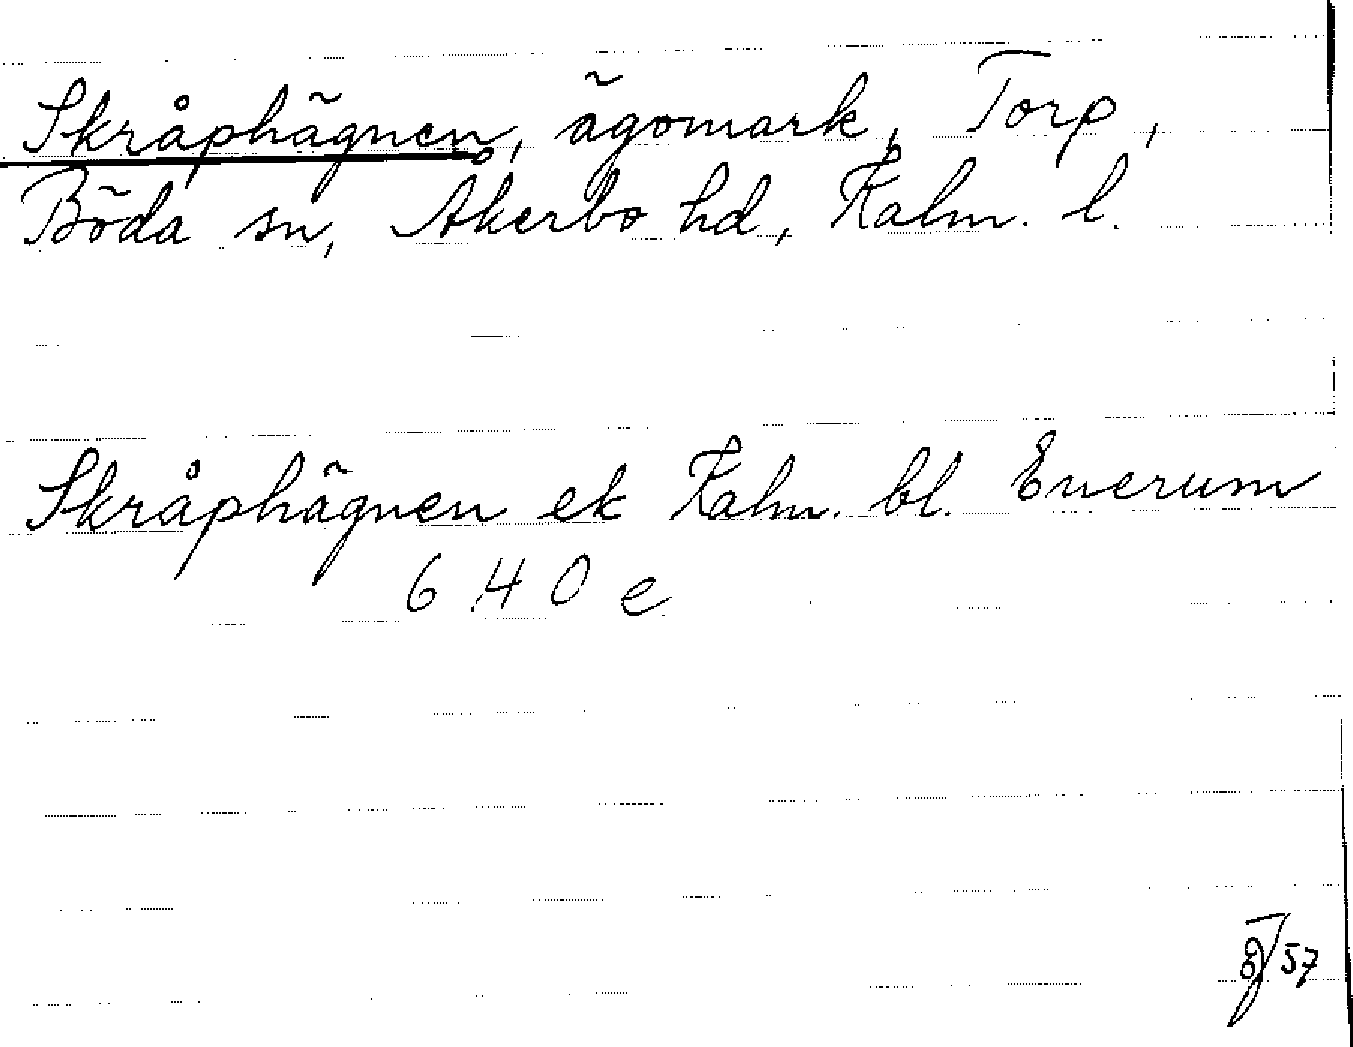 Skråphägnen, ägomark, Torp,
Böda sn, Åkerbo hd, Kalm. l.
Skråphägnen ek Kalm. bl. Enerum
6 H 0 e
57